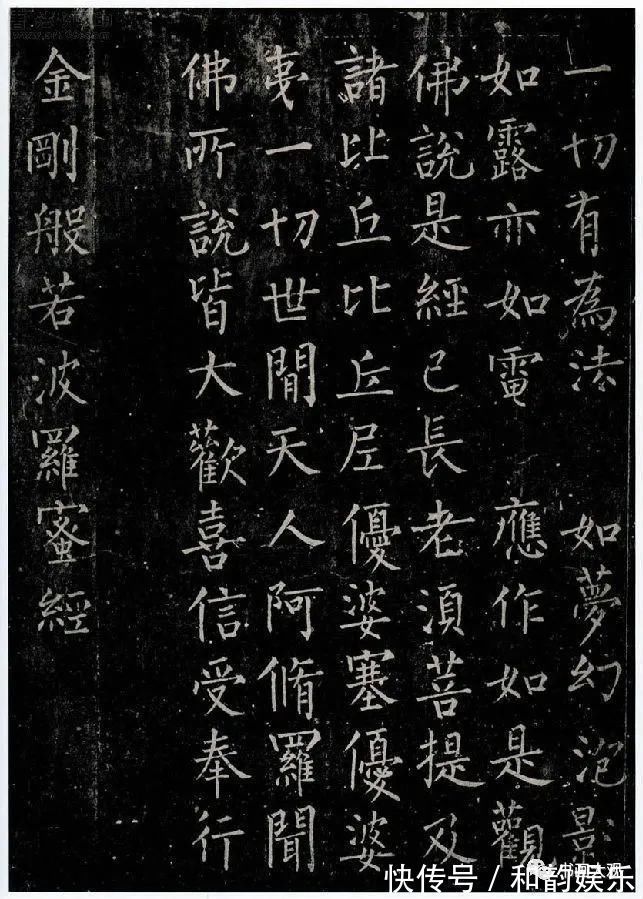 一切有為法 如夢幻泡影
如露亦如電 應作如是觀
佛說是經已長老須菩提及
諸比丘比丘尼優婆塞優婆
夷一切世間天人阿脩羅聞
佛所說皆大歡喜信受奉行
金剛般若波羅蜜經
书画大观
快传号／和韵娱乐